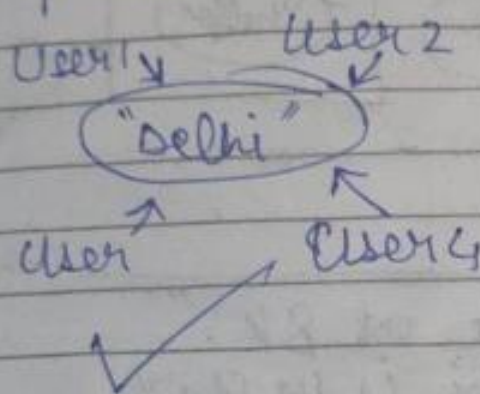 User1 User2
"Delhi"
User User4